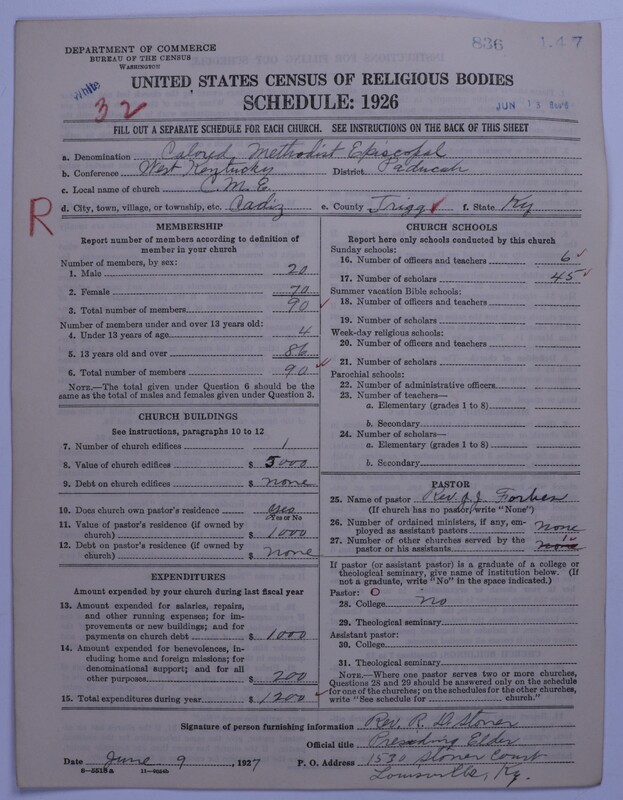 836 147
DEPARTMENT OF COMMERCE
BUREAU OF THE CENSUS
WASHINGTON
White
32
UNITED STATES CENSUS OF RELIGIOUS BODIES
SCHEDULE: 1926
JUN 13
FILL OUT A SEPARATE SCHEDULE FOR EACH CHURCH. SEE INSTRUCTIONS ON THE BACK OF THIS SHEET
a. Denomination Colored Methodist Episcopal
b. Conference West Kentucky District Paducah
c. Local name of church C. M. E.
R
d. City, town, village, or township, etc. Cadiz e. County Trigg f. State Ky
MEMBERSHIP
Report number of members according to definition of
member in your church
Number of members, by sex:
1. Male 20
2. Female 70
3. Total number of members 90
Number of members under and over 13 years old:
4. Under 13 years of age 4
5. 13 years old and over 86
6. Total number of members 90
NOTE.—The total given under Question 6 should be
the same as the total of males and females given under Question 3.
CHURCH BUILDINGS
See instructions, paragraphs 10 to 12
7. Number of church edifices 1
8. Value of church edifices $ 5000
9. Debt on church edifices $ none
10. Does church own pastor's residence yes
Yes or No
11. Value of pastor's residence (if owned by
church) $ 1000
12. Debt on pastor's residence (if owned by
church) $ none
EXPENDITURES
Amount expended by your church during last fiscal year
13. Amount expended for salaries, repairs,
and other running expenses; for im-
provements or new buildings; and for
payments on church debt $ 1000
14. Amount expended for benevolences, in-
cluding home and foreign missions; for
denominational support; and for all
other purposes $ 200
15. Total expenditures during year $ 1200
CHURCH SCHOOLS
Report here only schools conducted by this church
Sunday schools:
16. Number of officers and teachers 6
17. Number of scholars 45
Summer vacation Bible schools:
18. Number of officers and teachers
19. Number of scholars
Week-day religious schools:
20. Number of officers and teachers
21. Number of scholars
Parochial schools:
22. Number of administrative officers
23. Number of teachers—
a. Elementary (grades 1 to 8)
b. Secondary
24. Number of scholars—
a. Elementary (grades 1 to 8)
b. Secondary
PASTOR
25. Name of pastor Rev. J. J. Forbes
(If church has no pastor, write "None")
26. Number of ordained ministers, if any, em-
ployed as assistant pastors none
27. Number of other churches served by the
pastor or his assistants none
If pastor (or assistant pastor) is a graduate of a college or
theological seminary, give name of institution below. (If
not a graduate, write "No" in the space indicated.)
Pastor: O
28. College no
29. Theological seminary
Assistant pastor:
30. College
31. Theological seminary
NOTE.—Where one pastor serves two or more churches,
Questions 28 and 29 should be answered only on the schedule
for one of the churches; on the schedules for the other churches,
write "See schedule for church."
Signature of person furnishing information Rev. R. D. Stoner
Official title Presiding Elder
Date June 9, 1927 P. O. Address 1530 Stoner Court
8—5518a Louisville, Ky.